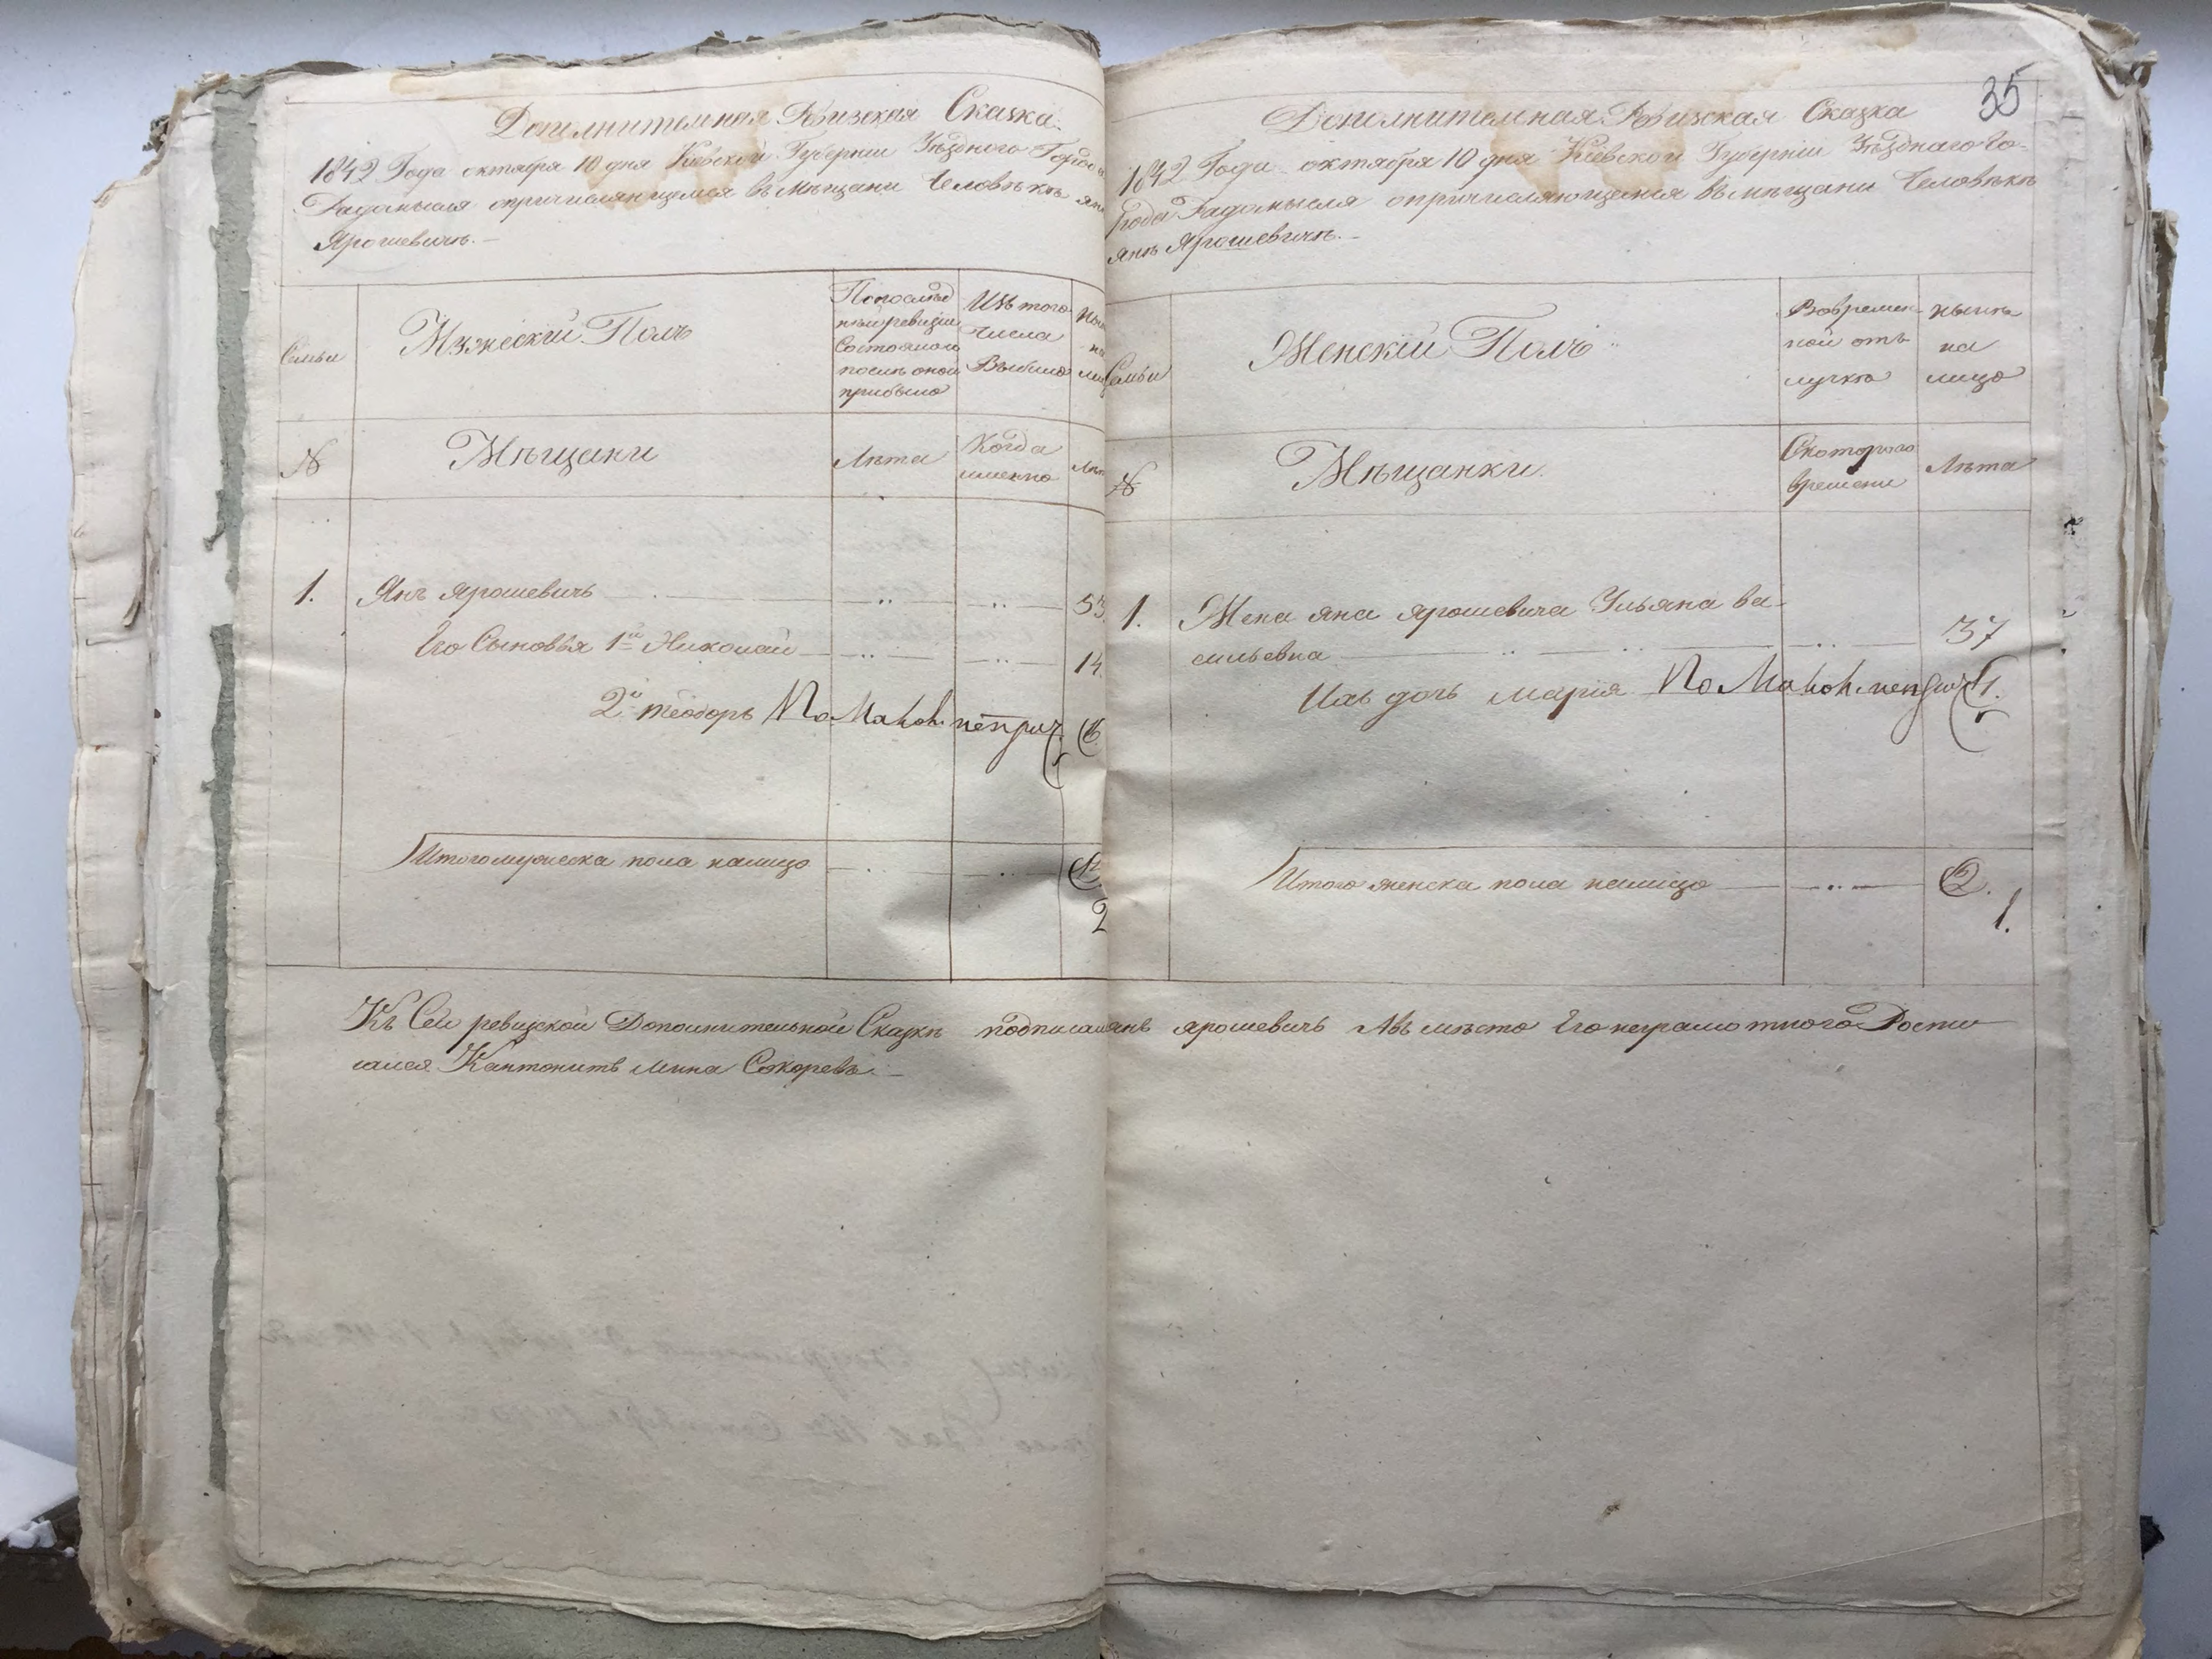 Дополнительная Ревизская Сказка
1842 Года октября 10 дня Киевской Губернии Уѣздного Города
Радомысля опричисляющемся въ мѣщани Человѣкѣ
Ярошевичѣ.
Семьи
Мужескій Полъ
По послѣд
ней ревизіи
Состояло и
послѣ оной
прибыло
Изъ того
числа
Выбыло
№
Мѣщани
Лѣта
Когда
именно
1.
Янъ Ярошевичъ
53
Его Сыновья 1й Николай
14
2й теодоръ
Итого мужеска пола налицо
2
35
Дополнительная Ревизская Сказка
1842 Года октября 10 дня Киевской Губерніи Уѣзднаго Го-
рода Радомысля опричисляющемся въ мѣщани Человѣкѣ
янѣ Ярошевичѣ.
Семьи
Женскій Полъ
Во времен-
ной от-
лучкѣ
нынѣ
на
лицо
№
Мѣщанки
С которого
времени
Лѣта
1.
Жена яна ярошевича Ульяна ва-
сильевна
37
Ихъ дочь марія
Итого женска пола налицо
2.
1.
Къ Сей ревизской Дополнительной Сказкѣ подписался янъ ярошевичъ Авъ мѣсто Его неграмотного Росписался
Кантонитъ мина